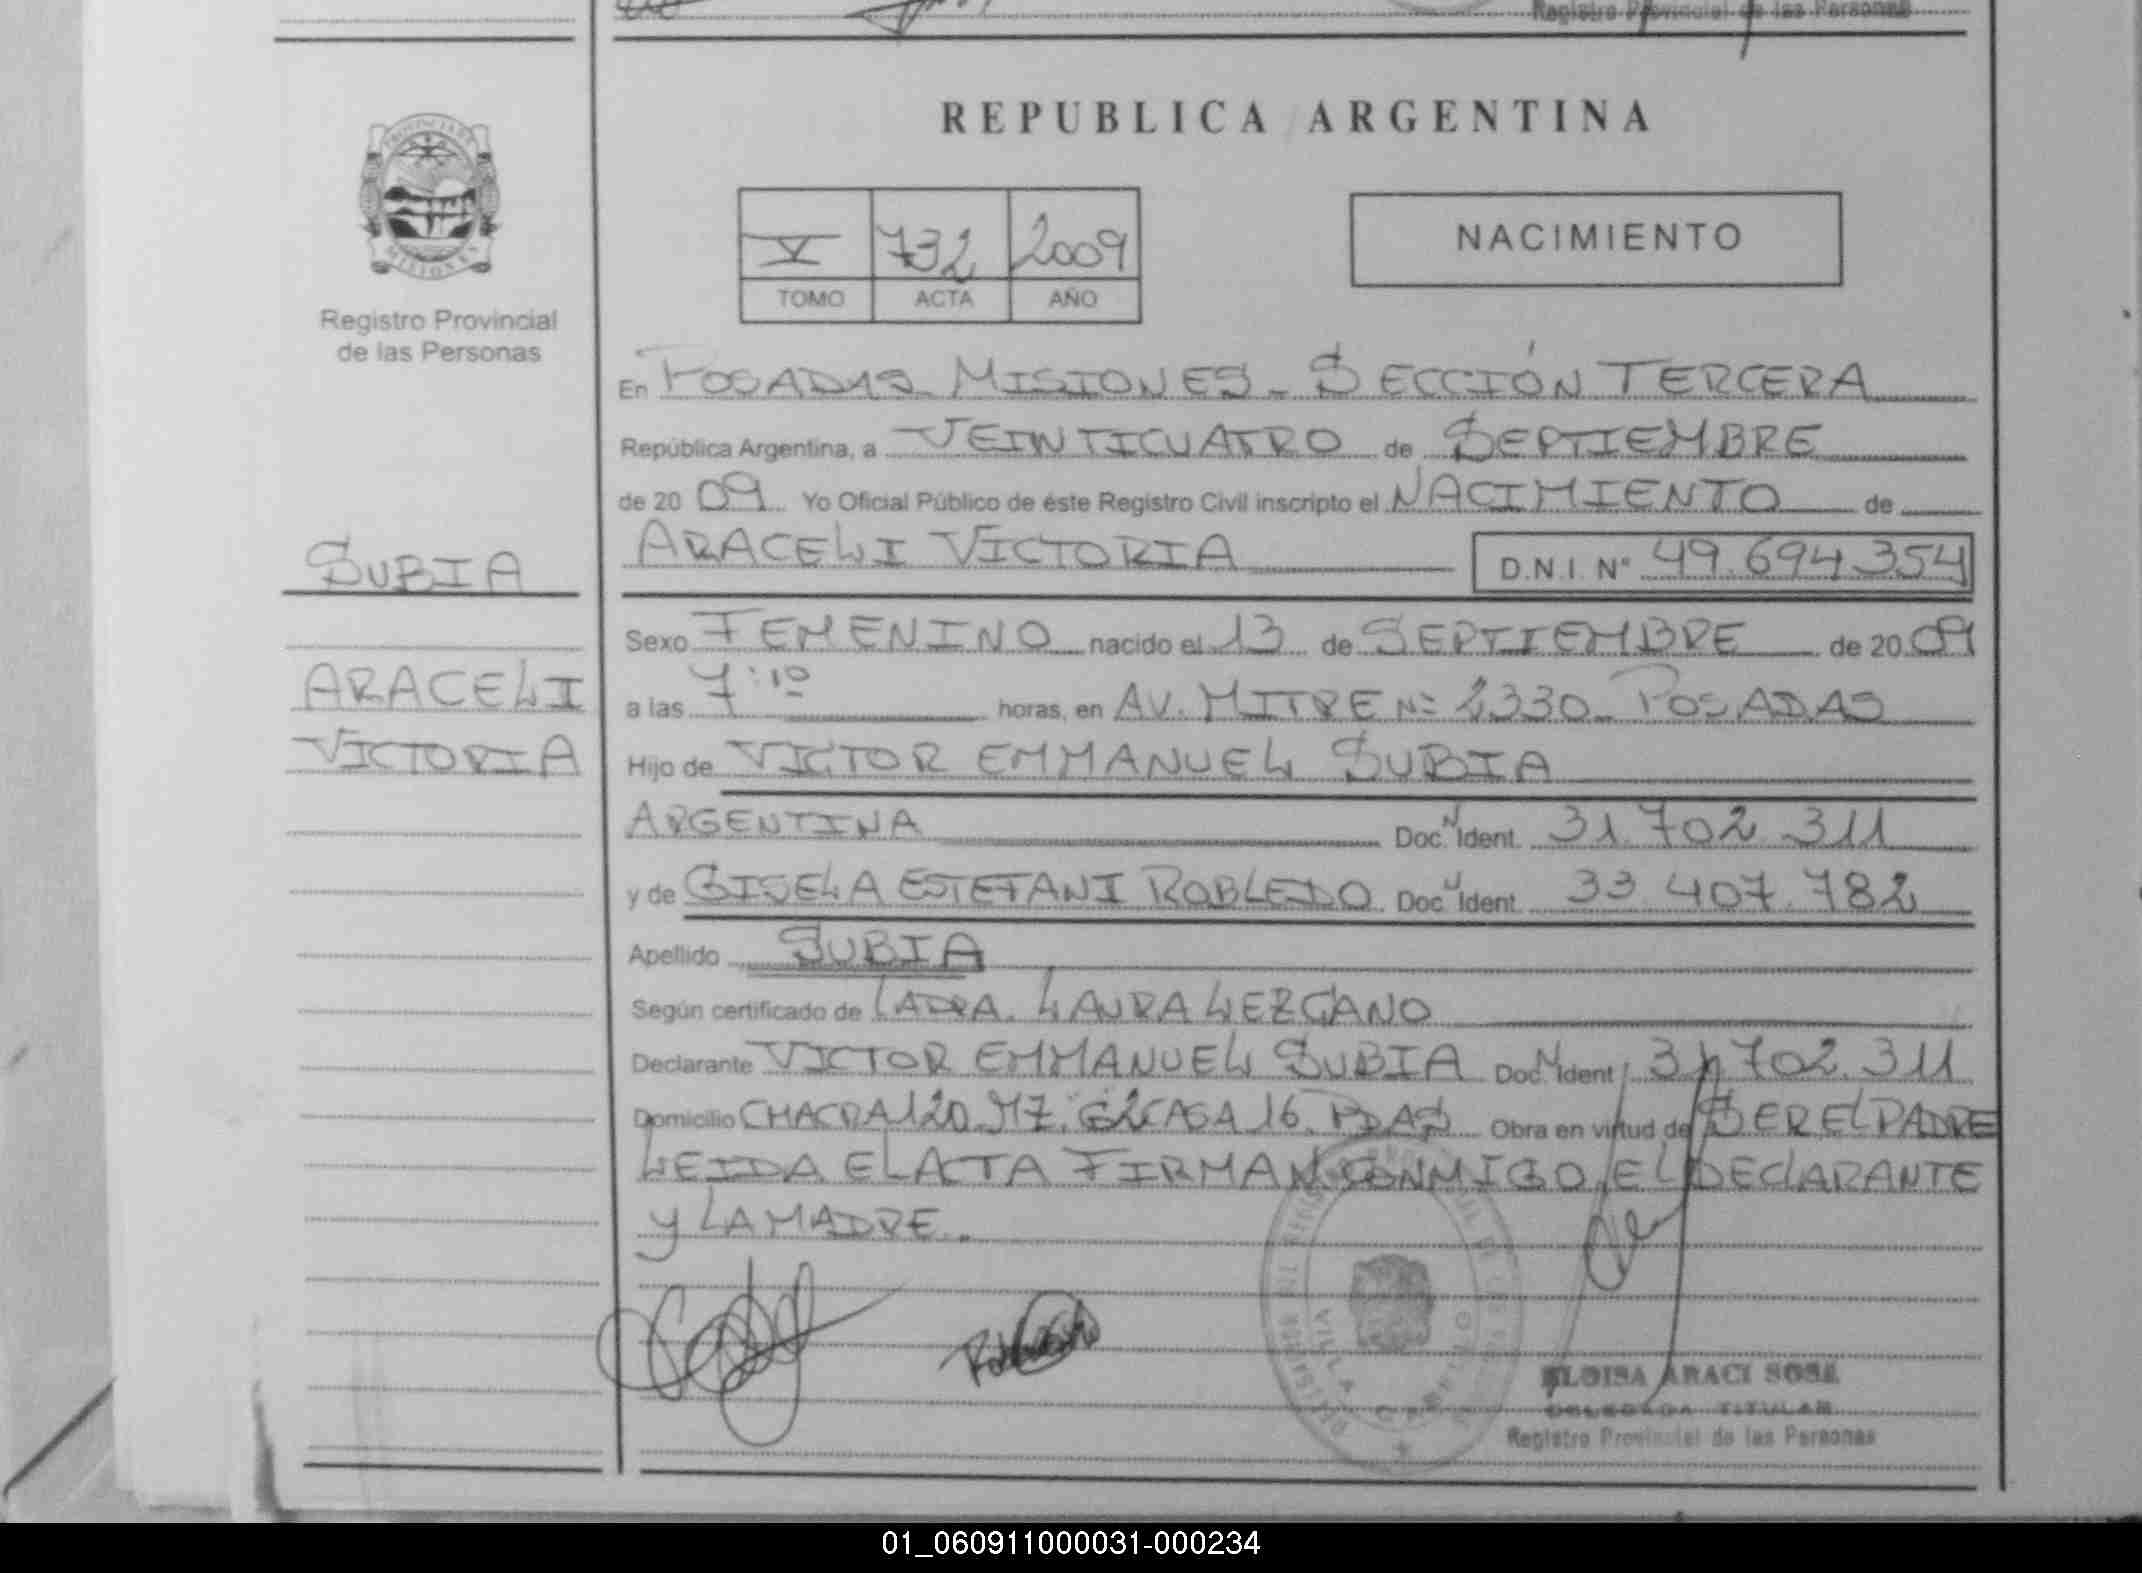 Registro Provincial de las Personas
REPUBLICA ARGENTINA
PROVINCIA DE
MISIONES
Registro Provincial
de las Personas
V 732 2009
TOMO ACTA AÑO
NACIMIENTO
En POSADAS MISIONES - SECCIÓN TERCERA
República Argentina, a VEINTICUATRO de SEPTIEMBRE
de 20 09 Yo Oficial Público de éste Registro Civil inscripto el NACIMIENTO de
SUBIA
ARACELI VICTORIA D.N.I. Nº 49.694.354
Sexo FEMENINO nacido el 13 de SEPTIEMBRE de 20 09
ARACELI
VICTORIA
a las 7:10 horas, en AV. MITRE Nº 2330 POSADAS
Hijo de VICTOR EMMANUEL SUBIA
ARGENTINA Doc. Ident. 31.702.311
y de GISELA ESTEFANI ROBLEDO Doc. Ident. 33.407.782
Apellido SUBIA
Según certificado de LADRA. LAURA LEZCANO
Declarante VICTOR EMMANUEL SUBIA Doc. Ident. 31.702.311
Domicilio CHACRA 120 MZ. G2 CASA 16. PDAS Obra en virtud de SER EL PADRE
LEIDA EL ACTA FIRMAN CONMIGO EL DECLARANTE
Y LA MADRE.
VILLA CABELLO
ELOISA ARACI SOSA
DELEGADA TITULAR
Registro Provincial de las Personas
01_060911000031-000234